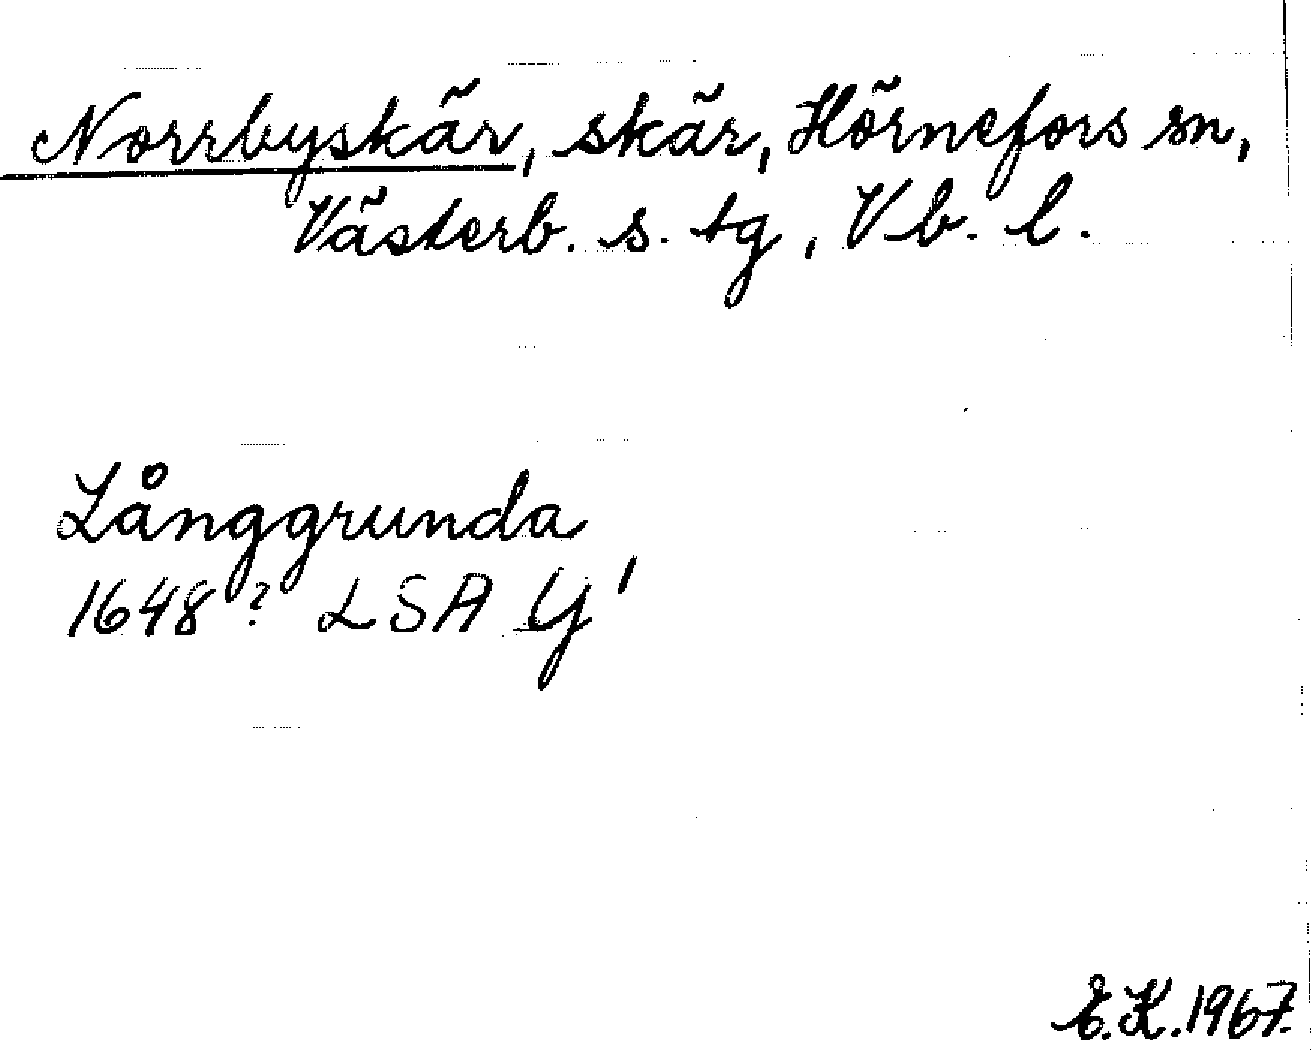 Norrbyskär, skär, Hörnefors sn,
Västerb. s. tg, Vb. l.
Långgrunda
1648? LSA Y 1
E.K. 1967.